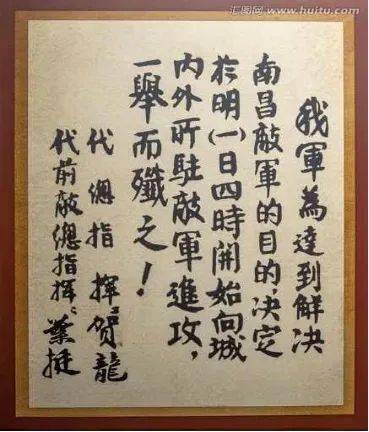 汇图网 www.huitu.com
我軍為達到解決
南昌敵軍的目的，决定
於明(一)日四時開始向城
内外所駐敵軍進攻，
一舉而殲之！
代總指揮：贺龍
代前敵總指揮：葉挺